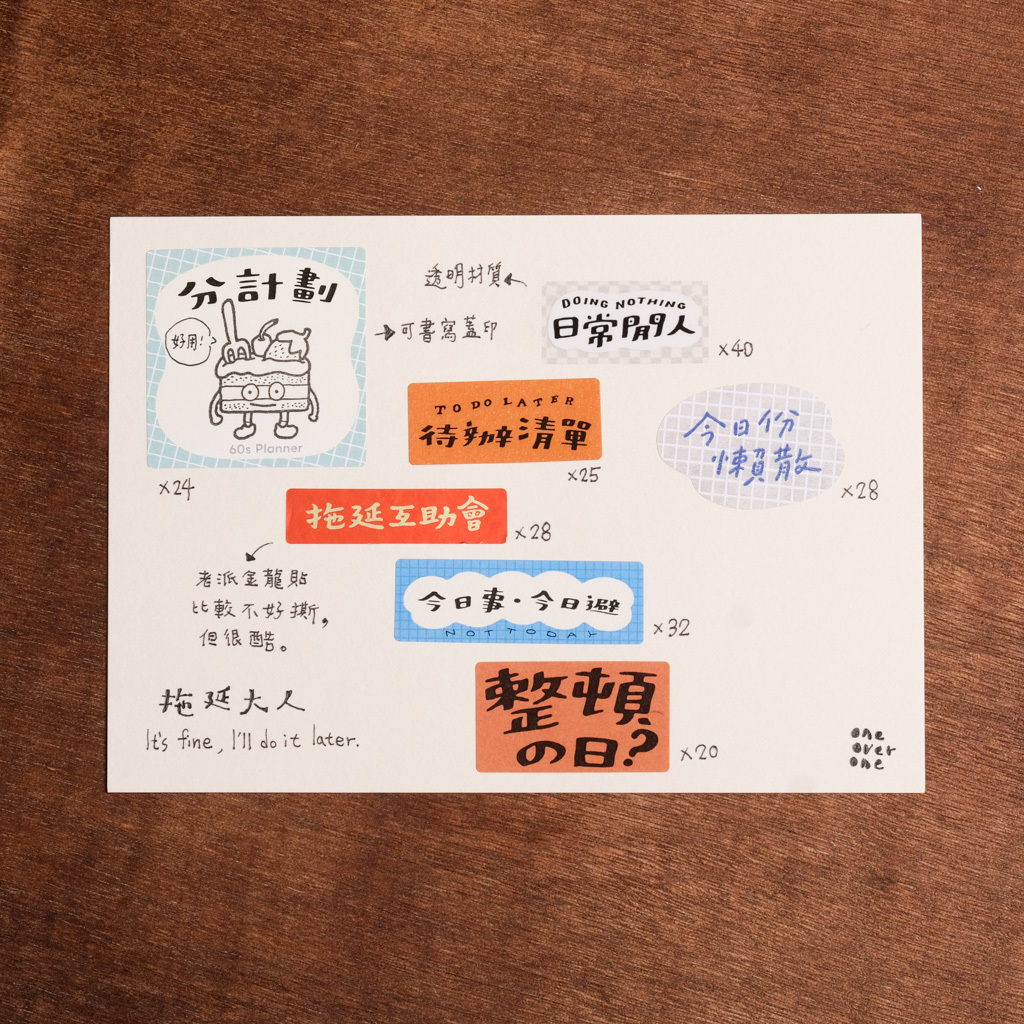 分計劃
好用!
60s Planner
×24
透明材質
可書寫蓋印
DOING NOTHING
日常閒人
×40
TO DO LATER
待辦清單
×25
今日份
懶散
×28
拖延互助會
×28
老派金龍貼
比較不好撕,
但很酷。
今日事·今日避
NOT TODAY
×32
整頓
の日?
×20
拖延大人
It's fine, I'll do it later.
one
over
one